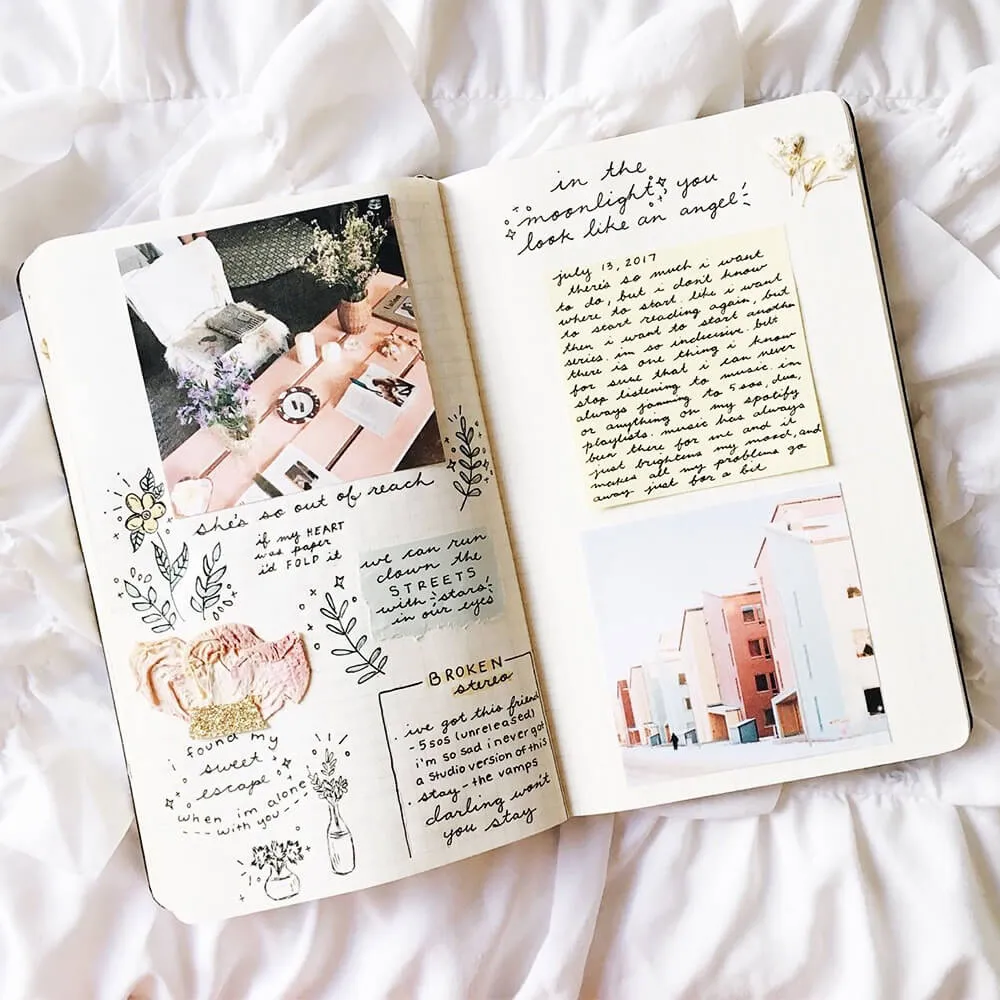 she's so out of reach
if my HEART
was paper
i'd FOLD it
we can run
down the
STREETS
with stars
in our eyes
BROKEN
stereo
ive got this friend
- 5sos (unreleased)
i'm so sad i never got
a studio version of this
. stay - the vamps
darling won't
you stay
i found my
sweet
escape
when im alone
with you
in the
moonlight you
look like an angel
july 13, 2017
there's so much i want
to do, but i don't know
where to start. like i want
to start reading again, but
then i want to start another
series. im so indecisive. but
there is one thing i know
for sure that i can never
stop listening to music. im
always jamming to 5sos, dua,
or anything on my spotify
playlists. music has always
been there for me and it
just brightens my mood, and
makes all my problems go
away just for a bit